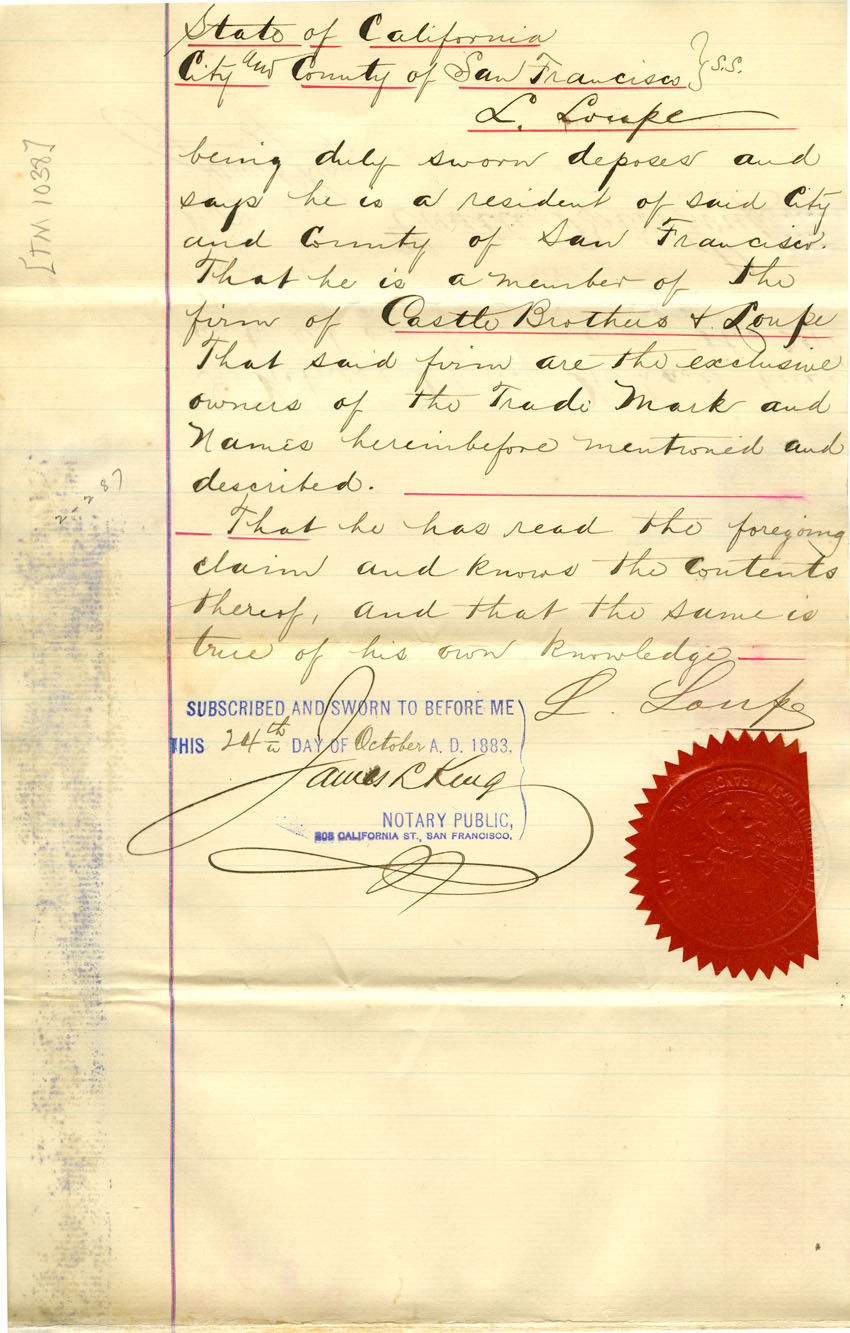 State of California
City and County of San Francisco } S.S.
L. Loupe
being duly sworn deposes and
says he is a resident of said City
and County of San Francisco.
That he is a member of the
firm of Castle Brothers & Loupe
That said firm are the exclusive
owners of the Trade Mark and
Names hereinbefore mentioned and
described.
That he has read the foregoing
claim and knows the contents
thereof, and that the same is
true of his own knowledge
L. Loupe
SUBSCRIBED AND SWORN TO BEFORE ME
THIS 24th DAY OF October A. D. 1883.
James L King
NOTARY PUBLIC,
CALIFORNIA ST., SAN FRANCISCO.
[TM 1038]